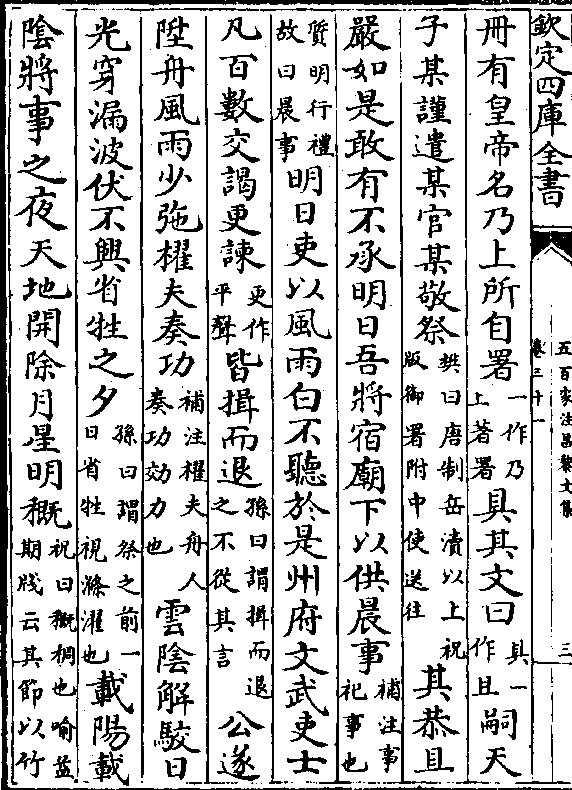 欽定四庫全書
五百家注昌黎文集
卷三十一
三
冊有皇帝名乃上所自署一作乃上著署具其文曰具一作且嗣天
子某謹遣某官某敬祭樊曰唐制岳瀆以上祝版御署附中使送往其恭且
嚴如是敢有不承明日吾將宿廟下以供晨事補注事祀事也
質明行禮故曰晨事明日吏以風雨白不聽於是州府文武吏士
凡百數交謁更諫更作平聲皆揖而退孫曰謂揖而退之不從其言公遂
陞舟風雨少弛櫂夫奏功補注櫂夫舟人奏功効力也雲陰解駮日
光穿漏波伏不興省牲之夕孫曰謂祭之前一日省牲視滌濯也載陽載
陰將事之夜天地開除月星明穊祝曰穊稠也喻益期牋云其節以竹